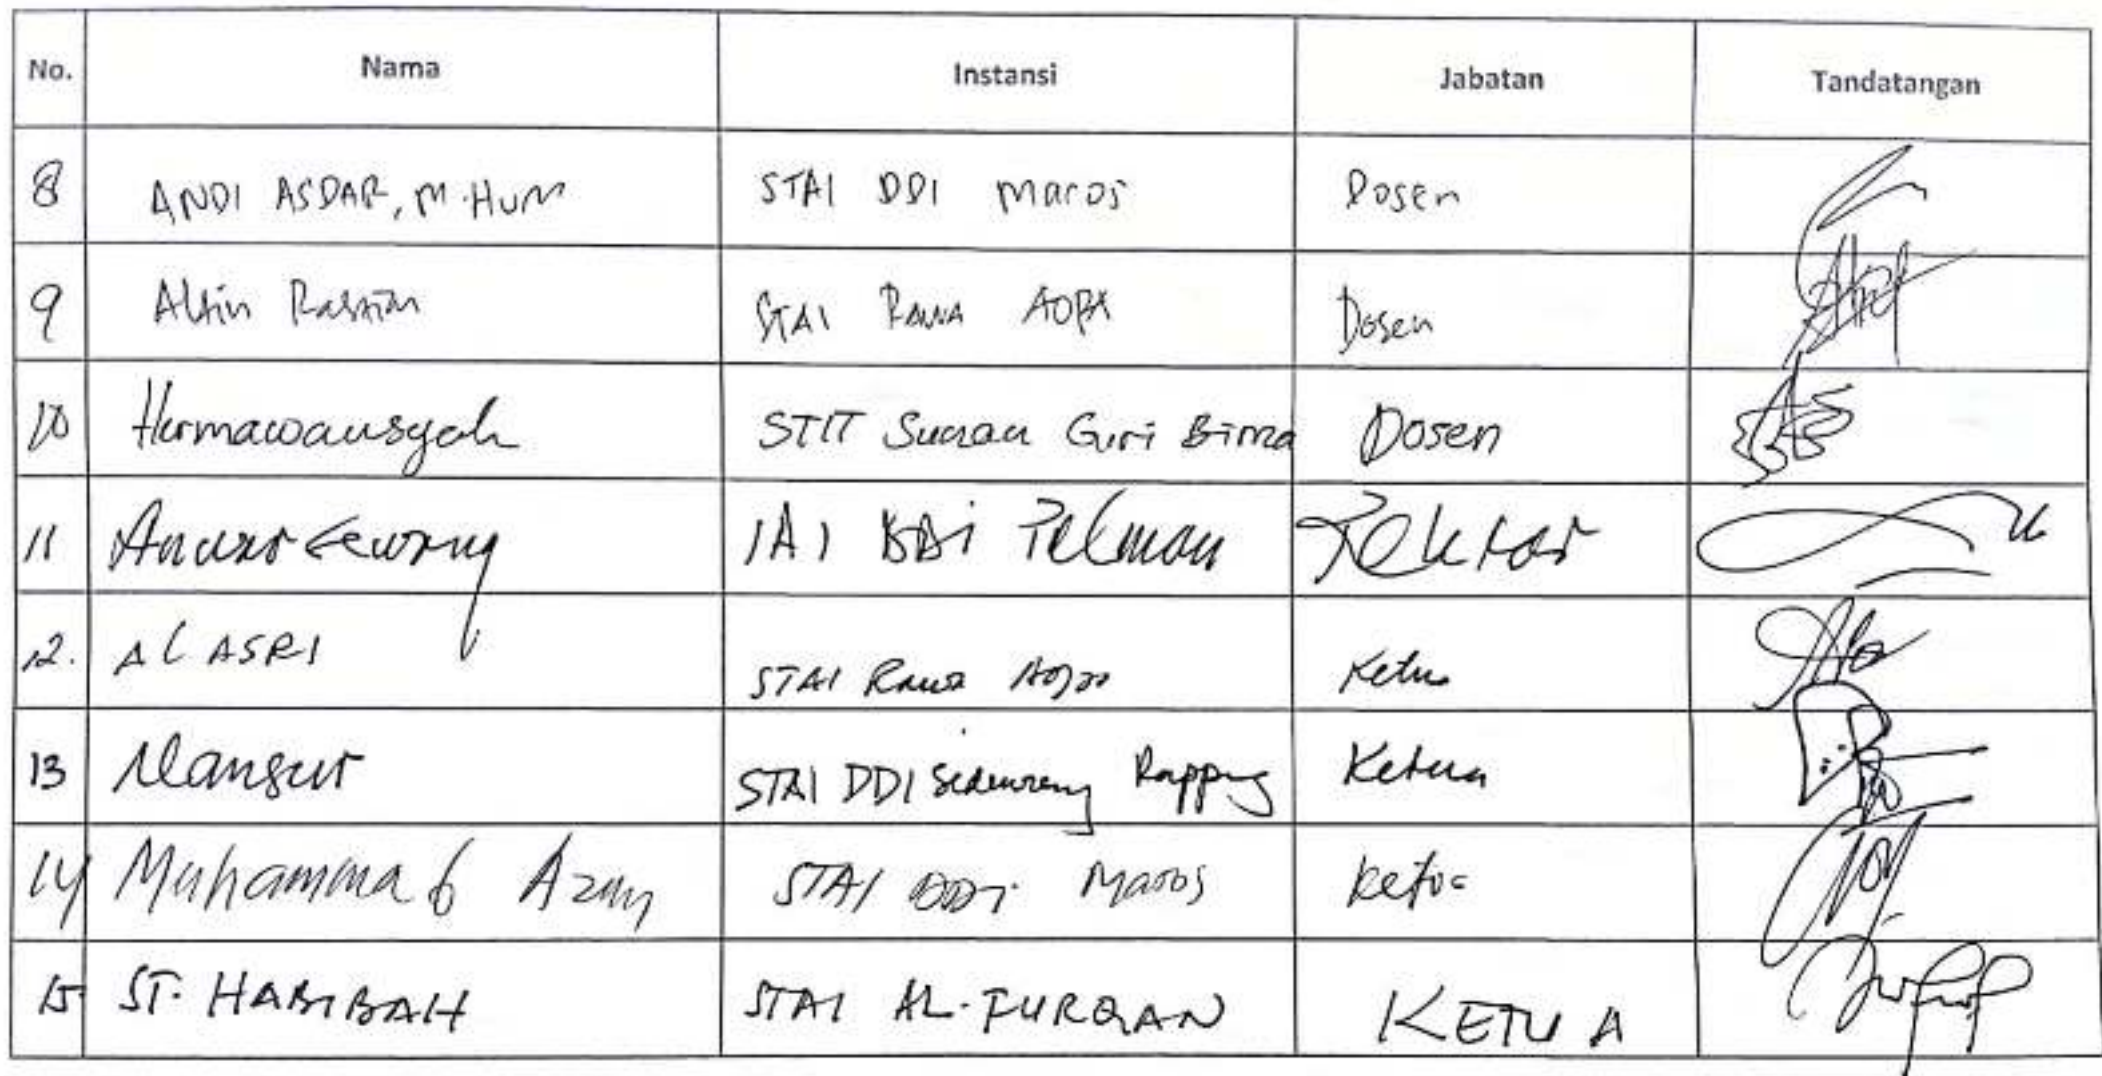 No. Nama Instansi Jabatan Tandatangan
8 ANDI ASDAR, M.HUM STAI DDI Maros Dosen
9 STAI Rawa AOPA Dosen
10 Hermawansyah STIT Sunan Giri Bima Dosen
11 Anwar Sewang IAI DDI Polman Rektor
12. AL ASRI STAI Rawa Aopa Ketua
13 Mansur STAI DDI Sidenreng Rappang Ketua
14 Muhammad STAI DDI Maros Ketua
15 ST. HABIBAH STAI AL-FURQAN KETUA